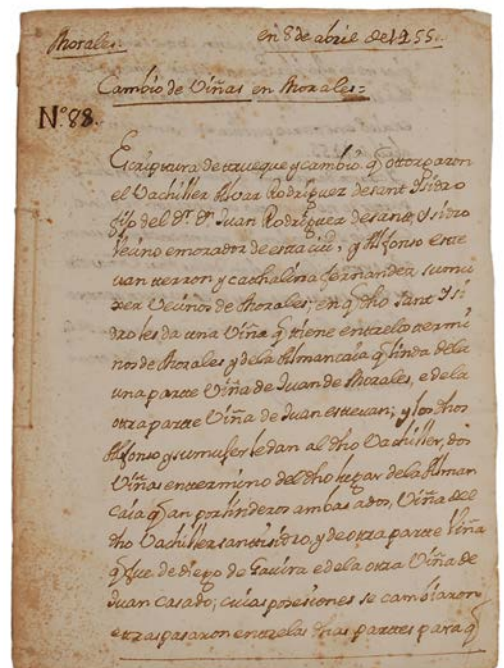 Morales. en 8 de abril de 1455.
Cambio de Viñas en Morales=
Nº 88.
Escriptura de trueque y cambio q̃ ottorgaron
el Vachiller Alvar Rodríguez de sant Ysidro
fijo del Dr. Dn. Juan Rodríguez de santo Ysidro
Vecino e morador de esta ciud, y Alfonso este
uan terron y cathalina fernandez su mu
xer Vecinos de Morales; en q̃ dho sant Ysi
dro les da una Viña q̃ tiene entre los termi
nos de Morales y de la Almancaia q̃ linda de la
una partte Viña de Juan de Morales, e de la
otra partte Viña de Juan estteuan; y los dhos
Alfonso y su mujer le dan al dho Vachiller, dos
Viñas en termino del dho lugar de la Alman
caia q̃ an por linderos ambas a dos, Viña del
dho Vachiller santtisidro, y de otra partte Viña
q̃ fue de diego de e de la otra Viña de
Juan Casado; cuias posesiones se cambiaron
e traspasaron entre las dhas parttes para q̃